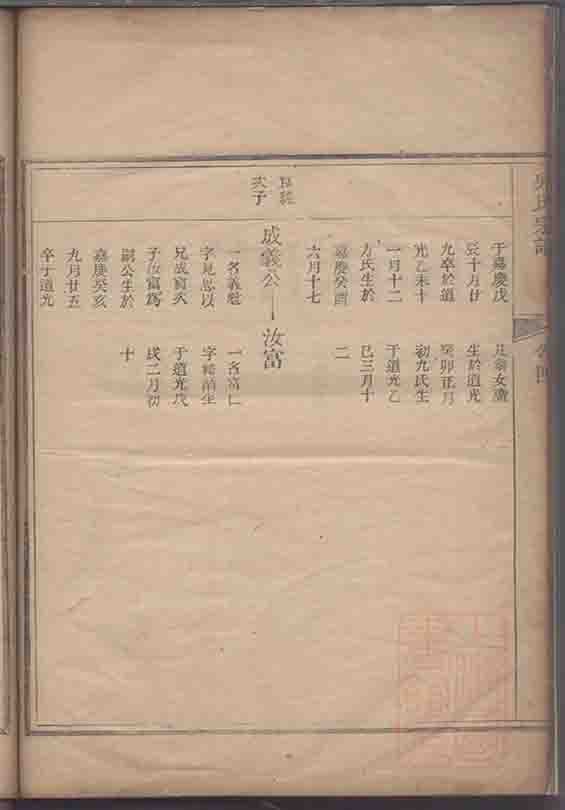 于嘉慶戊
辰十月廿
九卒於道
光乙未十
一月十二
方氏生於
嘉慶癸酉
六月十七
生於道光
癸卯正月
初九氏生
于道光乙
巳三月十
二
次子
成義公
汝富
一名義魁
字見思以
兄成寅次
子汝富爲
嗣公生於
嘉慶癸亥
九月廿五
卒于道光
一名富仁
生
于道光戊
戌二月初
十